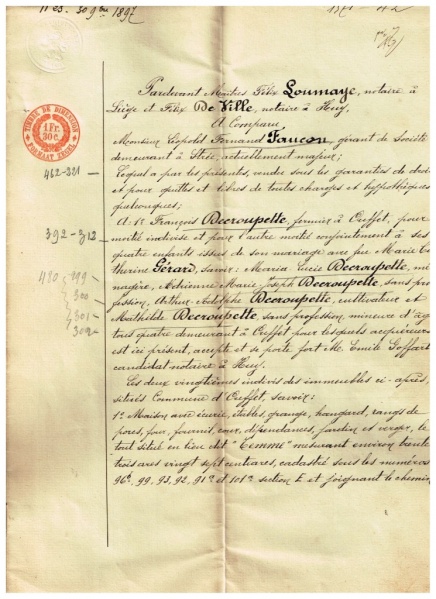 1897
Pardevant Maîtres Félix Loumaye, notaire à
Liège et Félix De Ville, notaire à Huy,
A Comparu
Monsieur Léopold Fernand Faucon, gérant de Société
demeurant à Strée, actuellement majeur;
Lequel a par les présentes, vendu sous les garanties de droit
et pour quittes et libres de toutes charges et hypothèques
quelconques;
TIMBRE DE DIMENSION
1 Fr.
30 c.
FORMAAT ZEGEL
462-321
A: 1° François Decroupette, fermier à Ouffet, pour
moitié indivise et pour l'autre moitié conjointement à ses
quatre enfants issus de son mariage avec feu Marie Ca
therine Gérard, savoir: Maria Lucie Decroupette, mé
nagère, Adrienne Marie-Joseph Decroupette, sans pro
fession, Arthur Adolphe Decroupette, cultivateur et
Mathilde Decroupette, sans profession, mineure d'âge
tous quatre demeurant à Ouffet pour lesquels acquéreurs
est ici présent, accepte et se porte fort Mr Emile Goffart
candidat notaire à Huy.
392-312
299
300
301
302
Les deux vingtièmes indivis des immeubles ci-après,
situés Commune d'Ouffet, savoir:
1° Maison avec écurie, étables, grange, hangard, rangs de
porcs, four, fournil, cour, dépendances, jardin et verger, le
tout situé en lieu dit "Temme" mesurant environ trente
trois ares vingt sept centiares, cadastré sous les numéros
96b, 99, 93, 92, 91 et 101 section E et joignant le chemin,